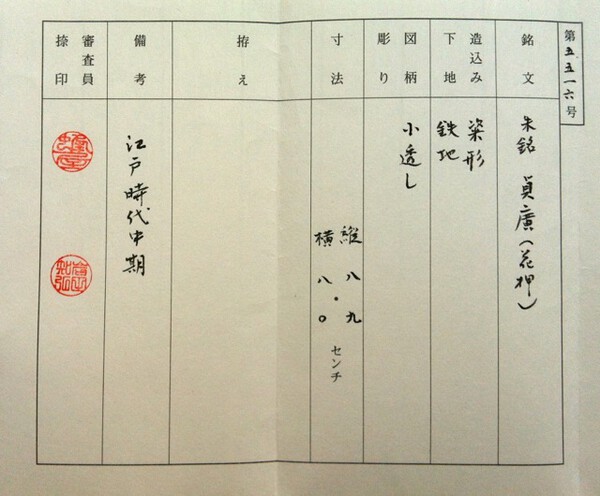 第五五一六号
銘文
朱銘 貞廣(花押)
造込み
下地
粢形
鉄地
図柄
彫り
小透し
寸法
縦 八・九
横 八・〇 センチ
拵え
備考
江戸時代中期
審査員
捺印